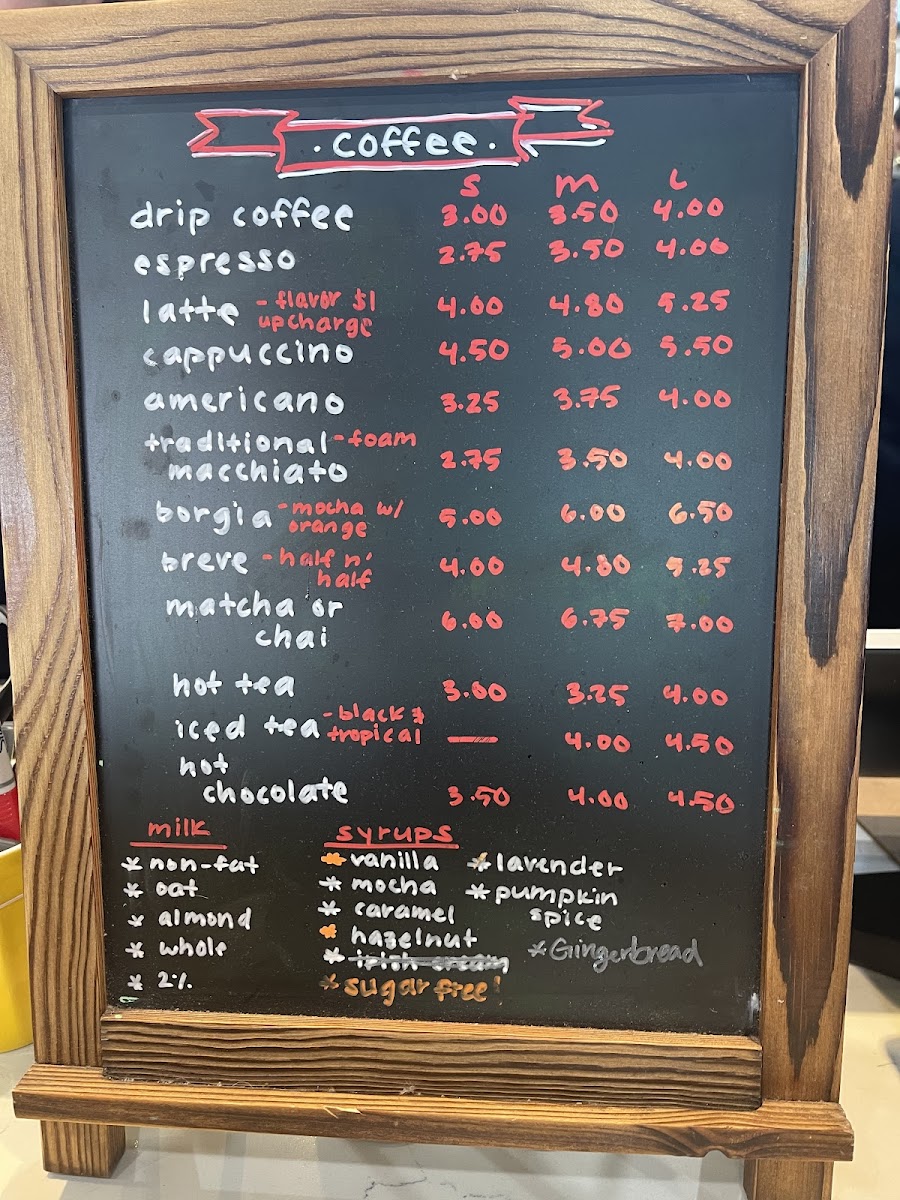 · coffee ·
S M L
drip coffee 3.00 3.50 4.00
espresso 2.75 3.50 4.00
latte - flavor $1 upcharge 4.00 4.80 5.25
cappuccino 4.50 5.00 5.50
americano 3.25 3.75 4.00
traditional - foam
macchiato 2.75 3.50 4.00
borgia - mocha w/ orange 5.00 6.00 6.50
breve - half n' half 4.00 4.80 5.25
matcha or
chai 6.00 6.75 7.00
hot tea 3.00 3.25 4.00
iced tea - black & tropical — 4.00 4.50
hot
chocolate 3.50 4.00 4.50
milk
* non-fat
* oat
* almond
* whole
* 2%
syrups
* vanilla
* mocha
* caramel
* hazelnut
* irish cream
* sugar free!
* lavender
* pumpkin
spice
* Gingerbread